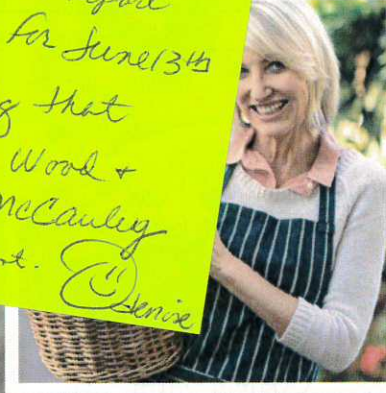 for June 13th
that
Wood +
McCauley
Denise